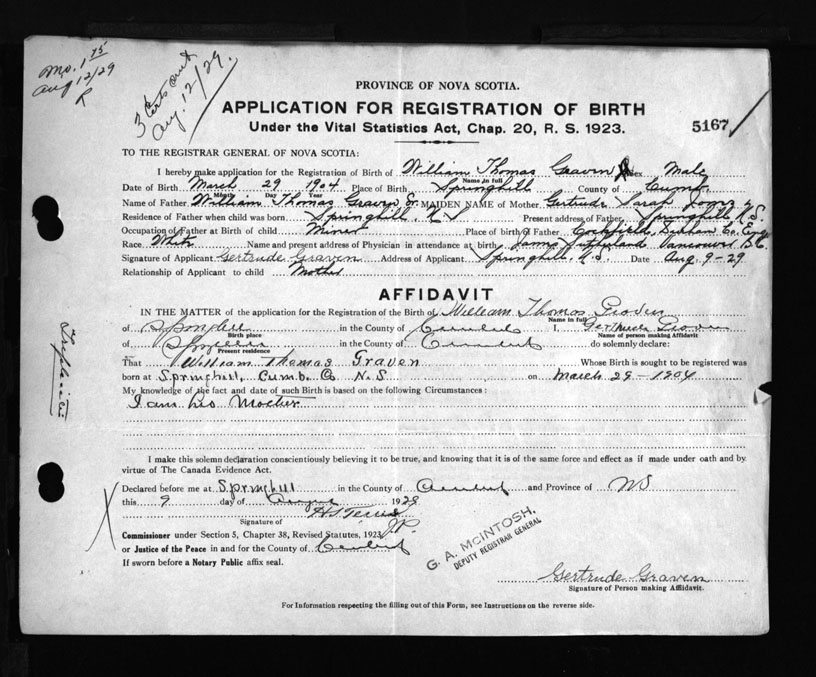 Mo. 1 75
Aug 12/29
3 Certs out
Aug. 12/29.
PROVINCE OF NOVA SCOTIA.
APPLICATION FOR REGISTRATION OF BIRTH
Under the Vital Statistics Act, Chap. 20, R. S. 1923.
5167
TO THE REGISTRAR GENERAL OF NOVA SCOTIA:
I hereby make application for the Registration of Birth of William Thomas Graven Sex Male
Name in full
Date of Birth March 29 1904 Place of Birth Springhill County of Cumb.
Month Day Year
Name of Father William Thomas Graven Sr. MAIDEN NAME of Mother Gertrude Sarah
Residence of Father when child was born Springhill, N.S. Present address of Father Springhill, N.S.
Occupation of Father at Birth of child Miner Place of birth of Father Cockfield, Durham Co. Eng.
Race White Name and present address of Physician in attendance at birth James Sutherland Vancouver B.C.
Signature of Applicant Gertrude Graven Address of Applicant Springhill, N.S. Date Aug. 9-29
Relationship of Applicant to child Mother
AFFIDAVIT
IN THE MATTER of the application for the Registration of the Birth of William Thomas
Name in full
of in the County of I, Gertrude
Birth place Name of person making Affidavit
of in the County of do solemnly declare:
Present residence
That William Thomas Graven Whose Birth is sought to be registered was
born at Springhill, Cumb. Co N.S on March 29-1904
My knowledge of the fact and date of such Birth is based on the following Circumstances:
I am his Mother
Triplicate
I make this solemn declaration conscientiously believing it to be true, and knowing that it is of the same force and effect as if made under oath and by
virtue of The Canada Evidence Act.
Declared before me at Springhill in the County of and Province of NS
this 9 day of August 1929
J.P.
Signature of
Commissioner under Section 5, Chapter 38, Revised Statutes, 1923,
or Justice of the Peace in and for the County of
If sworn before a Notary Public affix seal.
G. A. McINTOSH,
DEPUTY REGISTRAR GENERAL
Gertrude Graven
Signature of Person making Affidavit.
For Information respecting the filling out of this Form, see Instructions on the reverse side.